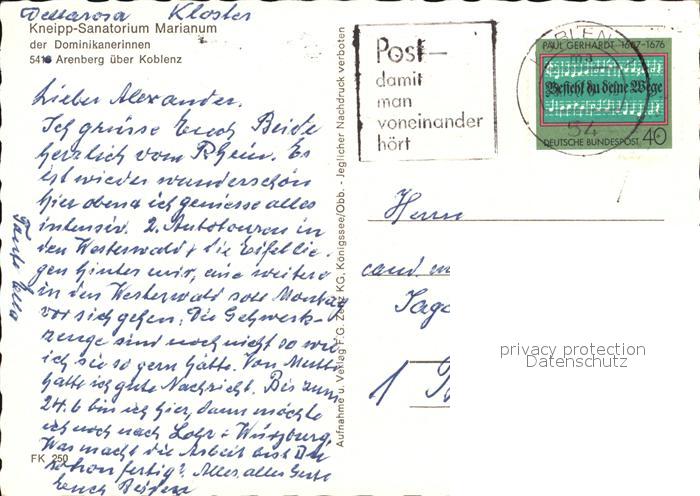 Kloster
Kneipp-Sanatorium Marianum
der Dominikanerinnen
541 Arenberg über Koblenz
Lieber Alexander.
Ich grüsse Euch Beide
herzlich vom Rhein. Es
ist wieder wunderschön
hier oben u. ich geniesse alles
intensiv. 2. Autotouren in
den Westerwald & die Eifel lie-
gen hinter mir, eine weitere
in den Westerwald soll Montag
vor sich gehen. Die Gehwerk-
zeuge sind noch nicht so wie
ich sie so gern hätte. Von Mutti
hatte ich gute Nachricht. Bis zum
24.6 bin ich hier, dann möchte
ich noch nach Lohr & Würzburg.
Was macht die Arbeit bist Du
schon fertig? Alles, alles Gute
Euch Beiden
Tante Ella
FK 250
Aufnahme u. Verlag F.G. Zeitz KG, Königssee/Obb. - Jeglicher Nachdruck verboten
Post-
damit
man
voneinander
hört
KOBLENZ
54
PAUL GERHARDT 1607-1676
Befiehl du deine Wege
DEUTSCHE BUNDESPOST 40
Herrn
cand.
1
privacy protection
Datenschutz